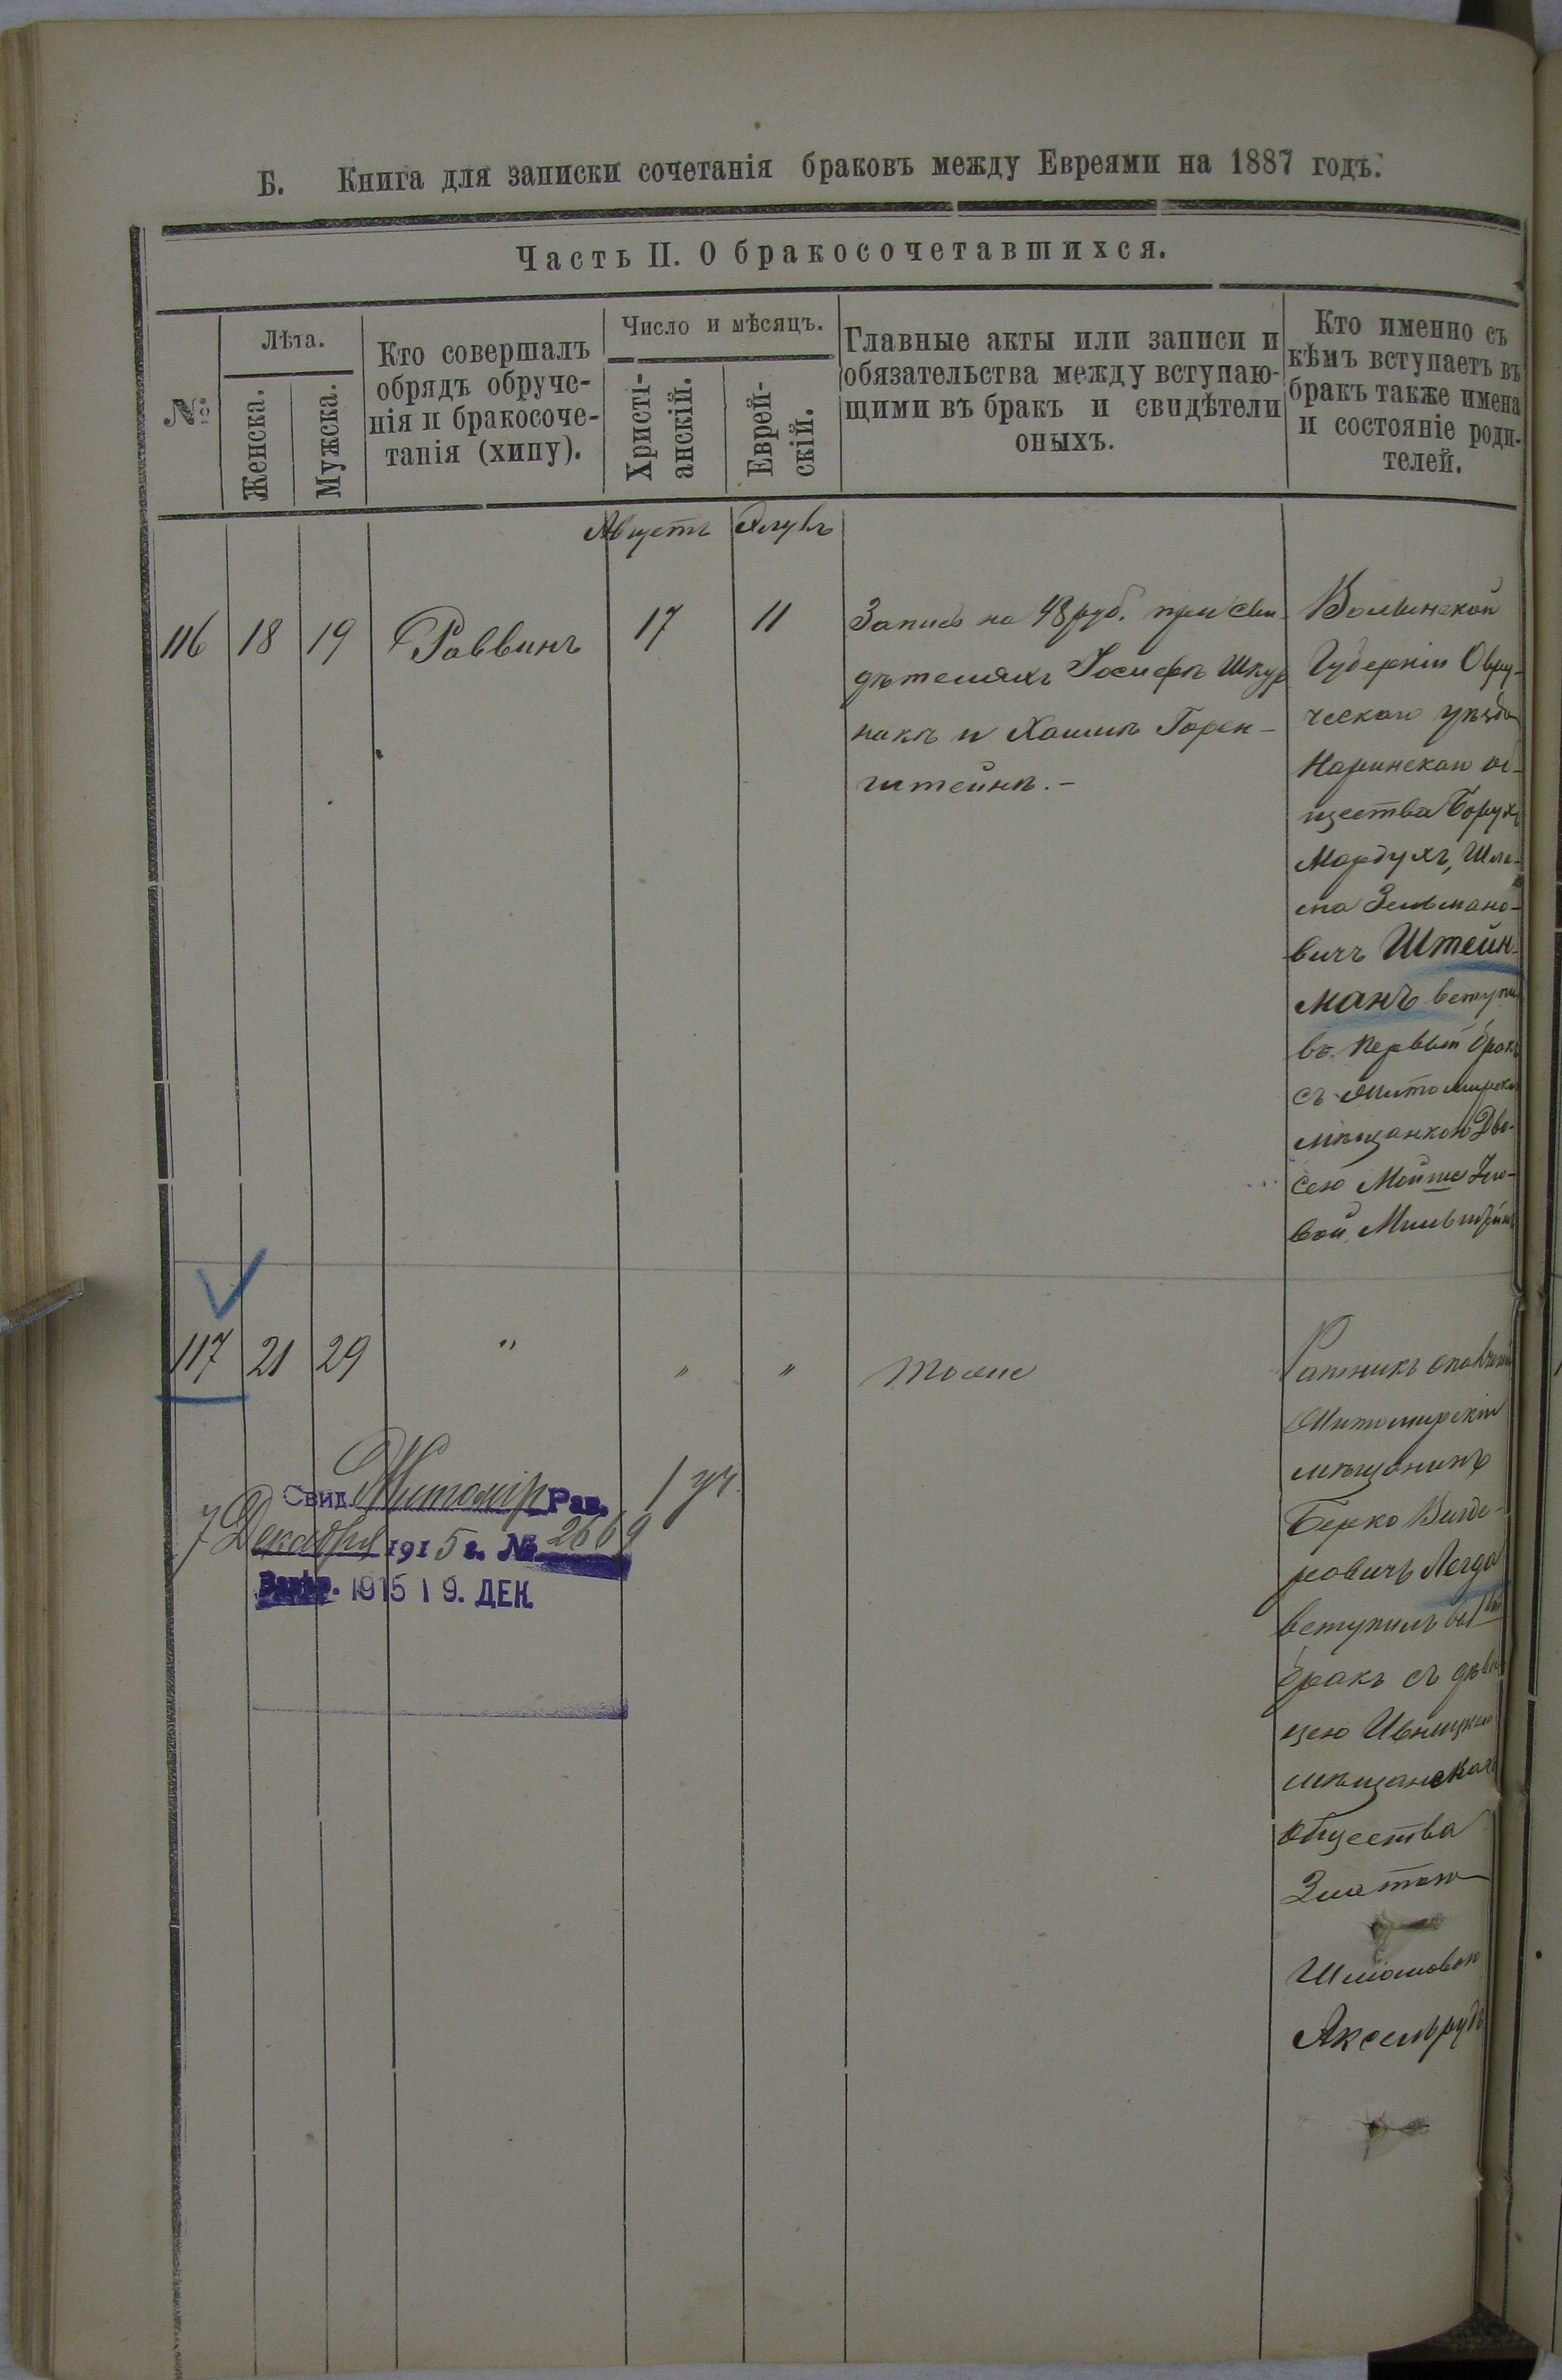 Б. Книга для записки сочетанія браковъ между Евреями на 1887 годъ.
Часть II. О бракосочетавшихся.
№
Лѣта.
Женска.
Мужска.
Кто совершалъ
обрядъ обруче-
нія и бракосоче-
танія (хипу).
Число и мѣсяцъ.
Христі-
анскій.
Еврей-
скій.
Главные акты или записи и
обязательства между вступаю-
щими въ бракъ и свидѣтели
оныхъ.
Кто именно съ
кѣмъ вступаетъ въ
бракъ также имена
и состояніе роди-
телей.
Августъ Элулъ
116 18 19 Раввинъ 17 11
Запись на 48 руб. при сви-
дѣтеляхъ Іосифъ Шкур
никъ и Хаимъ Горен-
штейнъ.-
Волынской
Губерніи Овру-
ческаго уѣзда
Наринскаго об-
щества Борухъ
Мордухъ, Шле-
ма Зельмано-
вичъ Штейн-
манъ вступи
въ первый бракъ
съ Житомирско
мѣщанкою Дво-
сею Мойше
вой
117 21 29 " " " тоже
Ратникъ ополченія
Житомирскій
мѣщанинъ
Берко
ровичъ Легда
вступилъ въ 1ый
бракъ съ дѣви
цею Ивницкаго
мѣщанскаго
общества
Златою
Шліомовою
Аксельрудъ
Свид. Житомір Рав.
7 Декабря 1915 г. № 2669
1915 19. ДЕК.
1 уч.